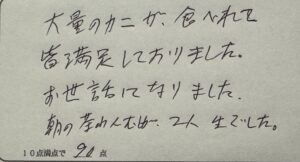 大量のカニが、食べれて
皆満足しておりました。
お世話になりました。
朝の茶わんむしが、2人 生でした。
10点満点で 90 点